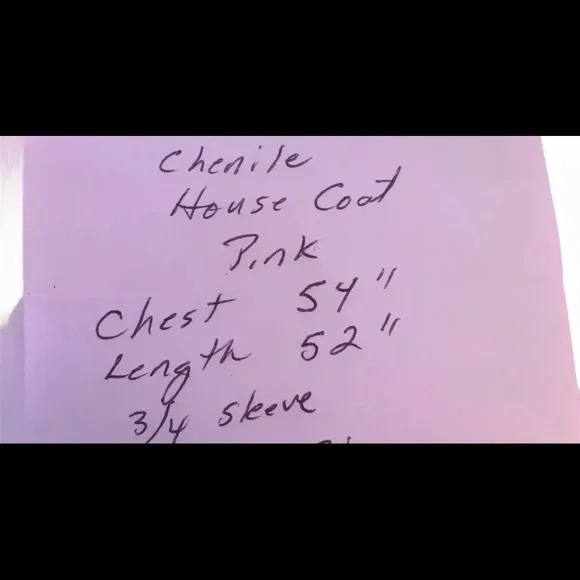 Chenile
House Coat
Pink
Chest 54"
Length 52"
3/4 sleeve